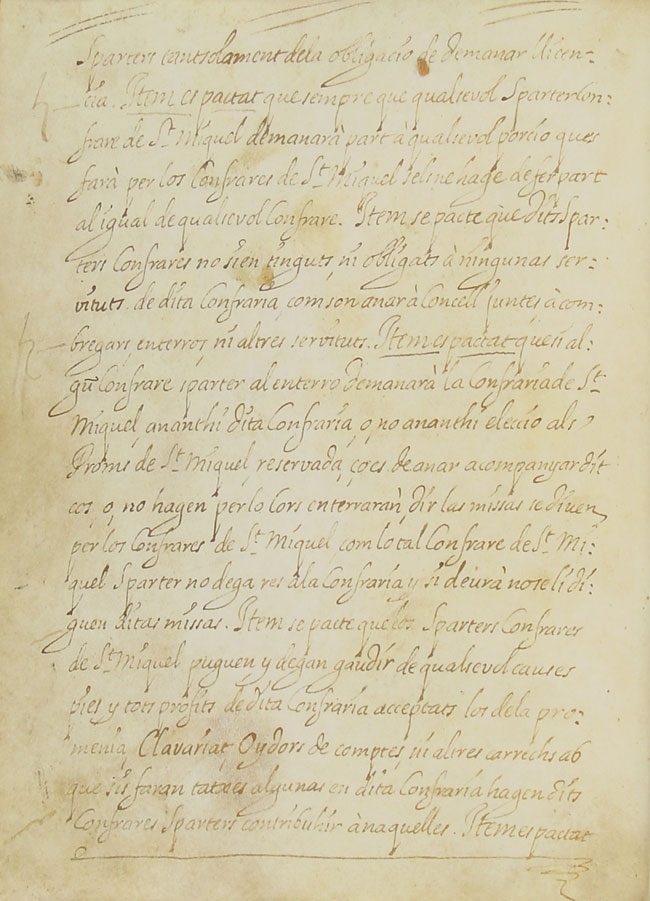 Sparters tantsolament dela obligacio de demanar llicen-
cia. Item es pactat que sempre que qualsevol Sparter Con-
frare de St. Miquel demanarà part à qualsevol porcio ques
farà per los Confrares de St. Miquel seli ne hage de fer part
al igual de qualsevol Confrare. Item se pacte que dits Spar-
ters Confrares no sien tinguts, ni obligats à ningunas ser-
vituts de dita Confraria, com son anar à Concell juntes, à com-
bregars, enterros, ni altres servituts. Item es pactat que si al-
gu Confrare sparter al enterro demanarà la Confraria de St.
Miquel, ananthi dita Confraria, o, no ananthi eleccio als
Proms de St. Miquel, reservada, ço es, de anar acompanyar dit
cos, o, no hagen per lo Cors enterraran, dir las missas se diuen
per los Confrares de St. Miquel com lo tal Confrare de St. Mi-
quel Sparter no dega res ala Confraria y si deurà no se li di-
guen ditas missas. Item se pacte que los Sparters Confrares
de St. Miquel puguen y degan gaudir de qualsevol causes
pies y tots profits de dita Confraria acceptats los dela pro-
menia, Clavariat, Oydors de comptes, ni altres carrechs ab
que sis faran tatxes algunas en dita Confraria hagen dits
Confrares Sparters contribuhir à naquelles. Item es pactat